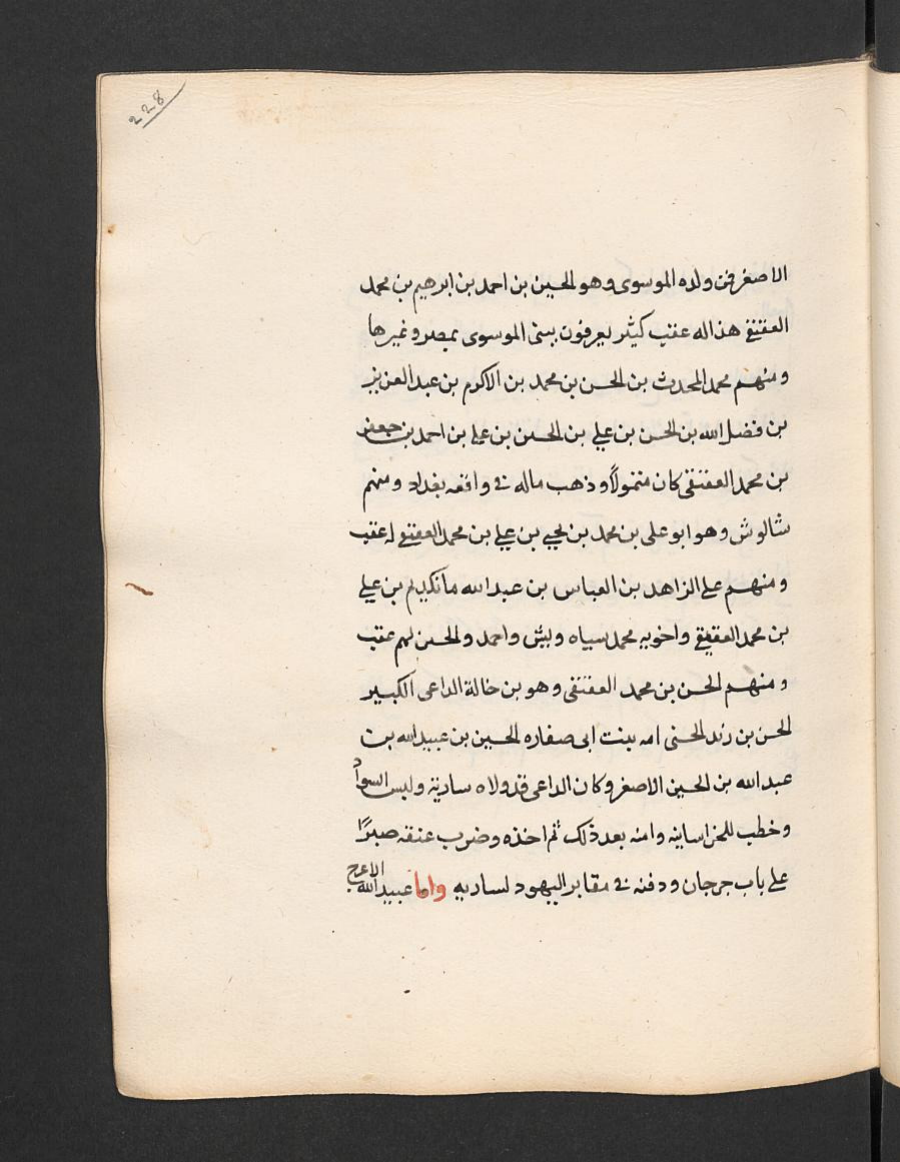 228
الاصغر فمن ولده الموسوى وهو الحسين بن احمد بن ابرهيم بن محمد
العقيقى هذا له عقب كثير يعرفون ببنى الموسوى بمصر وغيرها
ومنهم محمد المحدث بن الحسن بن محمد بن الاكرم بن عبد العزيز
بن فضل الله بن الحسن بن على بن الحسن بن على بن احمد بن جعفر
بن محمد العقيقى كان متمولاً وذهب ماله فى واقعه بغداد ومنهم
شالوش وهو ابو على بن محمد بن يحيى بن على بن محمد العقيقى له عقب
ومنهم على الزاهد بن العباس بن عبد الله مانكديم بن على
بن محمد العقيقى واخويه محمد سياه وبيش واحمد والحسن لهم عقب
ومنهم الحسن بن محمد العقيقى وهو بن خالة الداعى الكبير
الحسن بن زيد الحسنى امه بنت ابى صفاره الحسين بن عبيد الله بن
عبد الله بن الحسين الاصغر وكان الداعى قد ولاه سارية ولبس السواد
وخطب للخراسانيه وامنه بعد ذلك ثم اخذه وضرب عنقه صبرًا
على باب جرجان ودفنه فى مقابر اليهود لساريه واما عبيد الله الاعرج